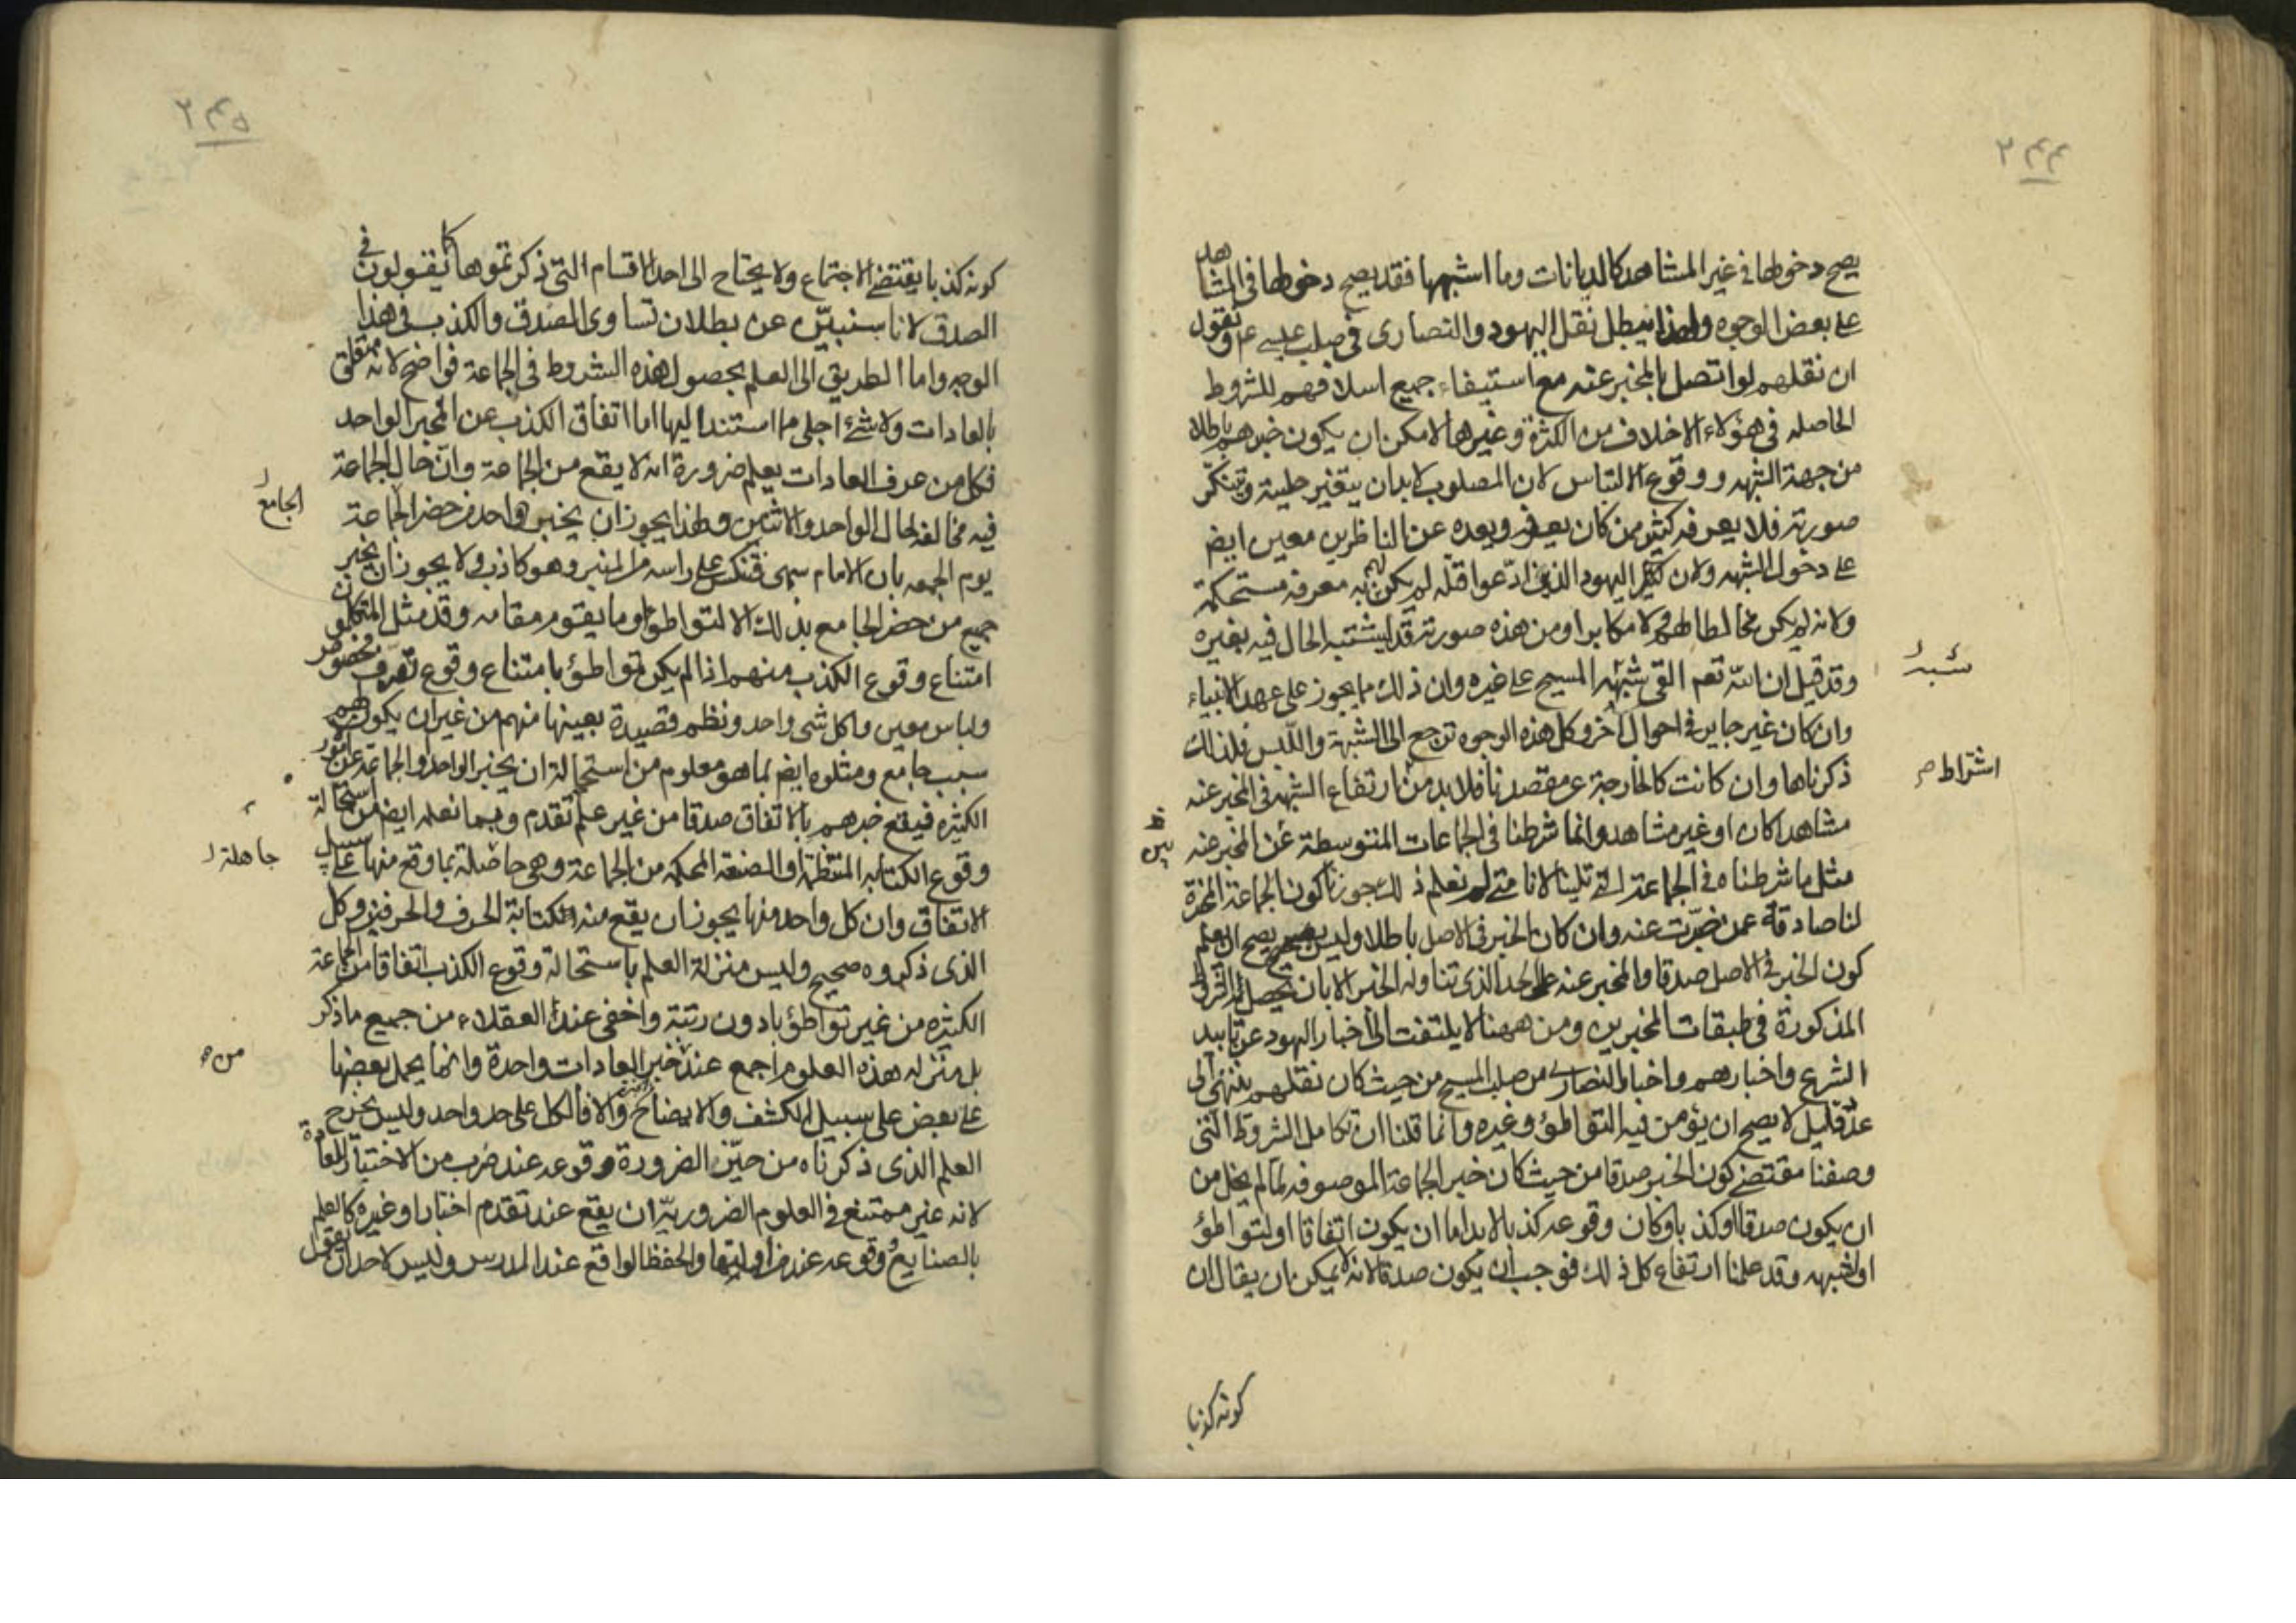 ٢٤٤
يصح دخولها في غير المشاهد كالديانات وما اشبهها فقد يصح دخولها في المشاهد
على بعض الوجوه ولهذا يبطل نقل اليهود والنصارى في صلب عيسى ع ونقول
ان نقلهم لو اتصل بالمخبر عنه مع استيفاء جميع اسلافهم للشروط
الحاصله في هؤلاء الاخلاف من الكثرة وغيرها لامكن ان يكون خبرهم باطلا
من جهة الشبهه ووقوع الالتباس لان المصلوب لابد ان يتغير حليته وتتنكر
صورته فلا يعرفه كثير ممن كان يعرفه وبعده عن الناظرين معين ايضا
على دخول الشبهه ولان اليهود الذين ادّعوا قتله لم يكن لهم به معرفه مستحكمة
ولانه لم يكن مخالطا لهم ولا مكابرا ومن هذه صورته قد يشتبه الحال فيه بغيره
وقد قيل ان الله تعم القى شبهه المسيح على غيره وان ذلك مما يجوز على عهد الانبياء
شبه
وان كان غير جايز في احوال اخر وكل هذه الوجوه ترجع الى الشبهة واللبس فلذلك
ذكرناها وان كانت كالخارجة عن مقصدنا فلابد من ارتفاع الشبهه في المخبر عنه
اشتراط
مشاهدا كان او غير مشاهد وانما شرطنا في الجماعات المتوسطة عن المخبر عنه
بين
مثل ما شرطناه في الجماعة التي تلينا لانا متى لم نعلم ذلك جوزنا كون الجماعة المخبرة
لنا صادقة عمن خبّرت عنه وان كان الخبر في الاصل باطلا وليس يصح ان يعلم
كون الخبر في الاصل صدقا والمخبر عنه على الحد الذي تناوله الخبر الا بان تحصل الشرائط
المذكورة في طبقات المخبرين ومن ههنا لا يلتفت الى اخبار اليهود عن تابيد
الشرع واخبارهم واخبار النصارى من صلب المسيح من حيث كان نقلهم ينتهي الى
عدد قليل لا يصح ان يؤمن فيه التواطؤ وغيره وانما قلنا ان تكامل الشروط التي
وصفنا مقتضي كون الخبر صدقا من حيث كان خبر الجماعة الموصوفه لما لم يخل من
ان يكون صدقا او كذبا وكان وقوعه كذبا لابد اما ان يكون اتفاقا او لتواطؤ
او لشبهه وقد علمنا ارتفاع كل ذلك فوجب ان يكون صدقا لانه لا يمكن ان يقال ان
كونه كذبا
٢٤٥
كونه كذبا يقتضي الاجتماع ولا يحتاج الى احد الاقسام التي ذكرتموها كما يقولون في
الصدق لانا سنبيّن عن بطلان تساوي الصدق والكذب في هذا
الوجه واما الطريق الى العلم بحصول هذه الشروط في الجماعة فواضح لانه متعلق
بالعادات ولا شئ اجلى مما استند اليها اما اتفاق الكذب عن المخبر الواحد
فكل من عرف العادات يعلم ضرورة انه لا يقع من الجماعة وانّ حال الجماعة
فيه مخالفه لحال الواحد والاثنين ولهذا يجوز ان يخبر واحد من حضر الجماعة
الجامع
يوم الجمعه بان الامام سهى فتنكس على راسه من المنبر وهو كاذب ولا يجوز ان يخبر
جميع من حضر الجامع بذلك الا لتواطؤ او ما يقوم مقامه وقد مثل المتكلمون
امتناع وقوع الكذب منهم اذا لم يكن تواطؤ بامتناع وقوع تصرف مخصوص
ولباس معين واكل شى واحد ونظم قصيدة بعينها منهم من غير ان يكون لهم
سبب جامع ومثلوه ايضا بما هو معلوم من استحالة ان يخبر الواحد والجماعة عن الامور
الكثيره فيقع خبرهم بالاتفاق صدقا من غير علم تقدم وبما نعلمه ايضا من استحالة
وقوع الكتابه المنتظمة او الصنعة المحكمه من الجماعة وهي حاصلة بما وقع منها على سبيل
جاهلة
الاتفاق وان كل واحد منها يجوز ان يقع منه الكتابة الحرف والحرفين وكل
الذي ذكروه صحيح وليس منزلة العلم باستحالة وقوع الكذب اتفاقا من الجماعة
الكثيره من غير تواطؤ بادون رتبة واخفى عند العقلاء من جميع ما ذكر
بل منزله هذه العلوم اجمع عند خبر العادات واحدة وانما يحمل بعضها
من
على بعض على سبيل الكشف والايضاح والا فالكل على حد واحد وليس يخرج
العلم الذي ذكرناه من حيّز الضرورة وقوعه عند ضرب من الاختبار للعادة
لانه غير ممتنع في العلوم الضروريه ان يقع عند تقدم اختبار او غيره كالعلم
بالصنايع وقوعه عند مزاولتها والحفظ الواقع عند الدرس وليس لاحد ان يقول